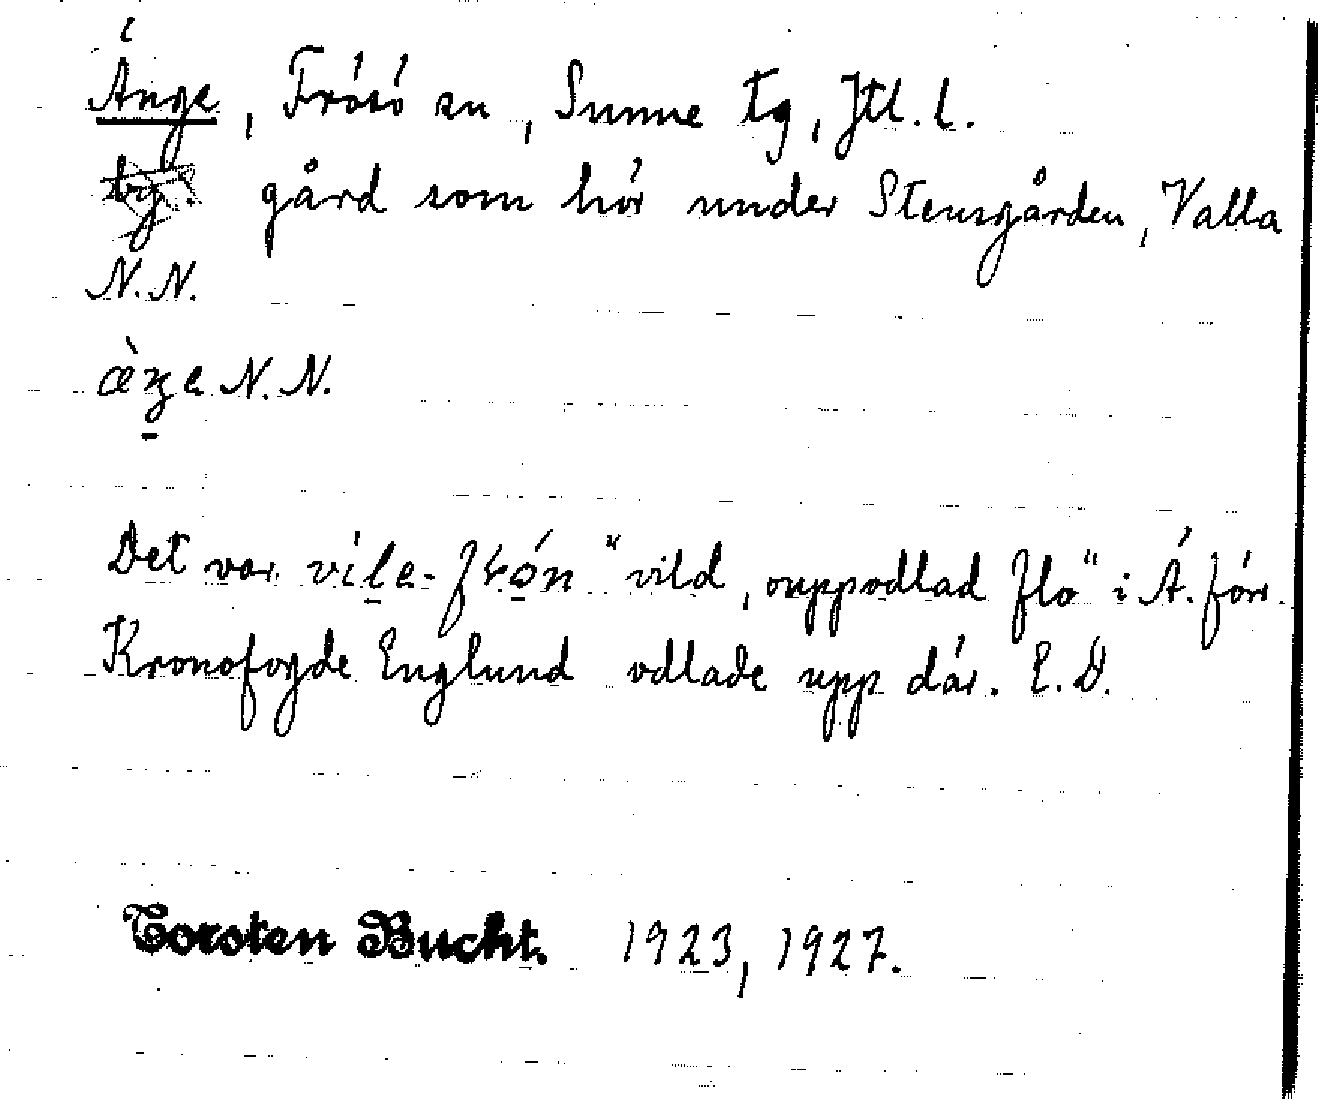 Änge, Frösö sn, Sunne tg, Jtl. l.
gård som hör under Stensgården, Valla
N.N.
N.N.
Det var "vild, ouppodlad flo" i Ä. förr.
Kronofogde Englund odlade upp där. E.D.
Torsten Bucht. 1923, 1927.